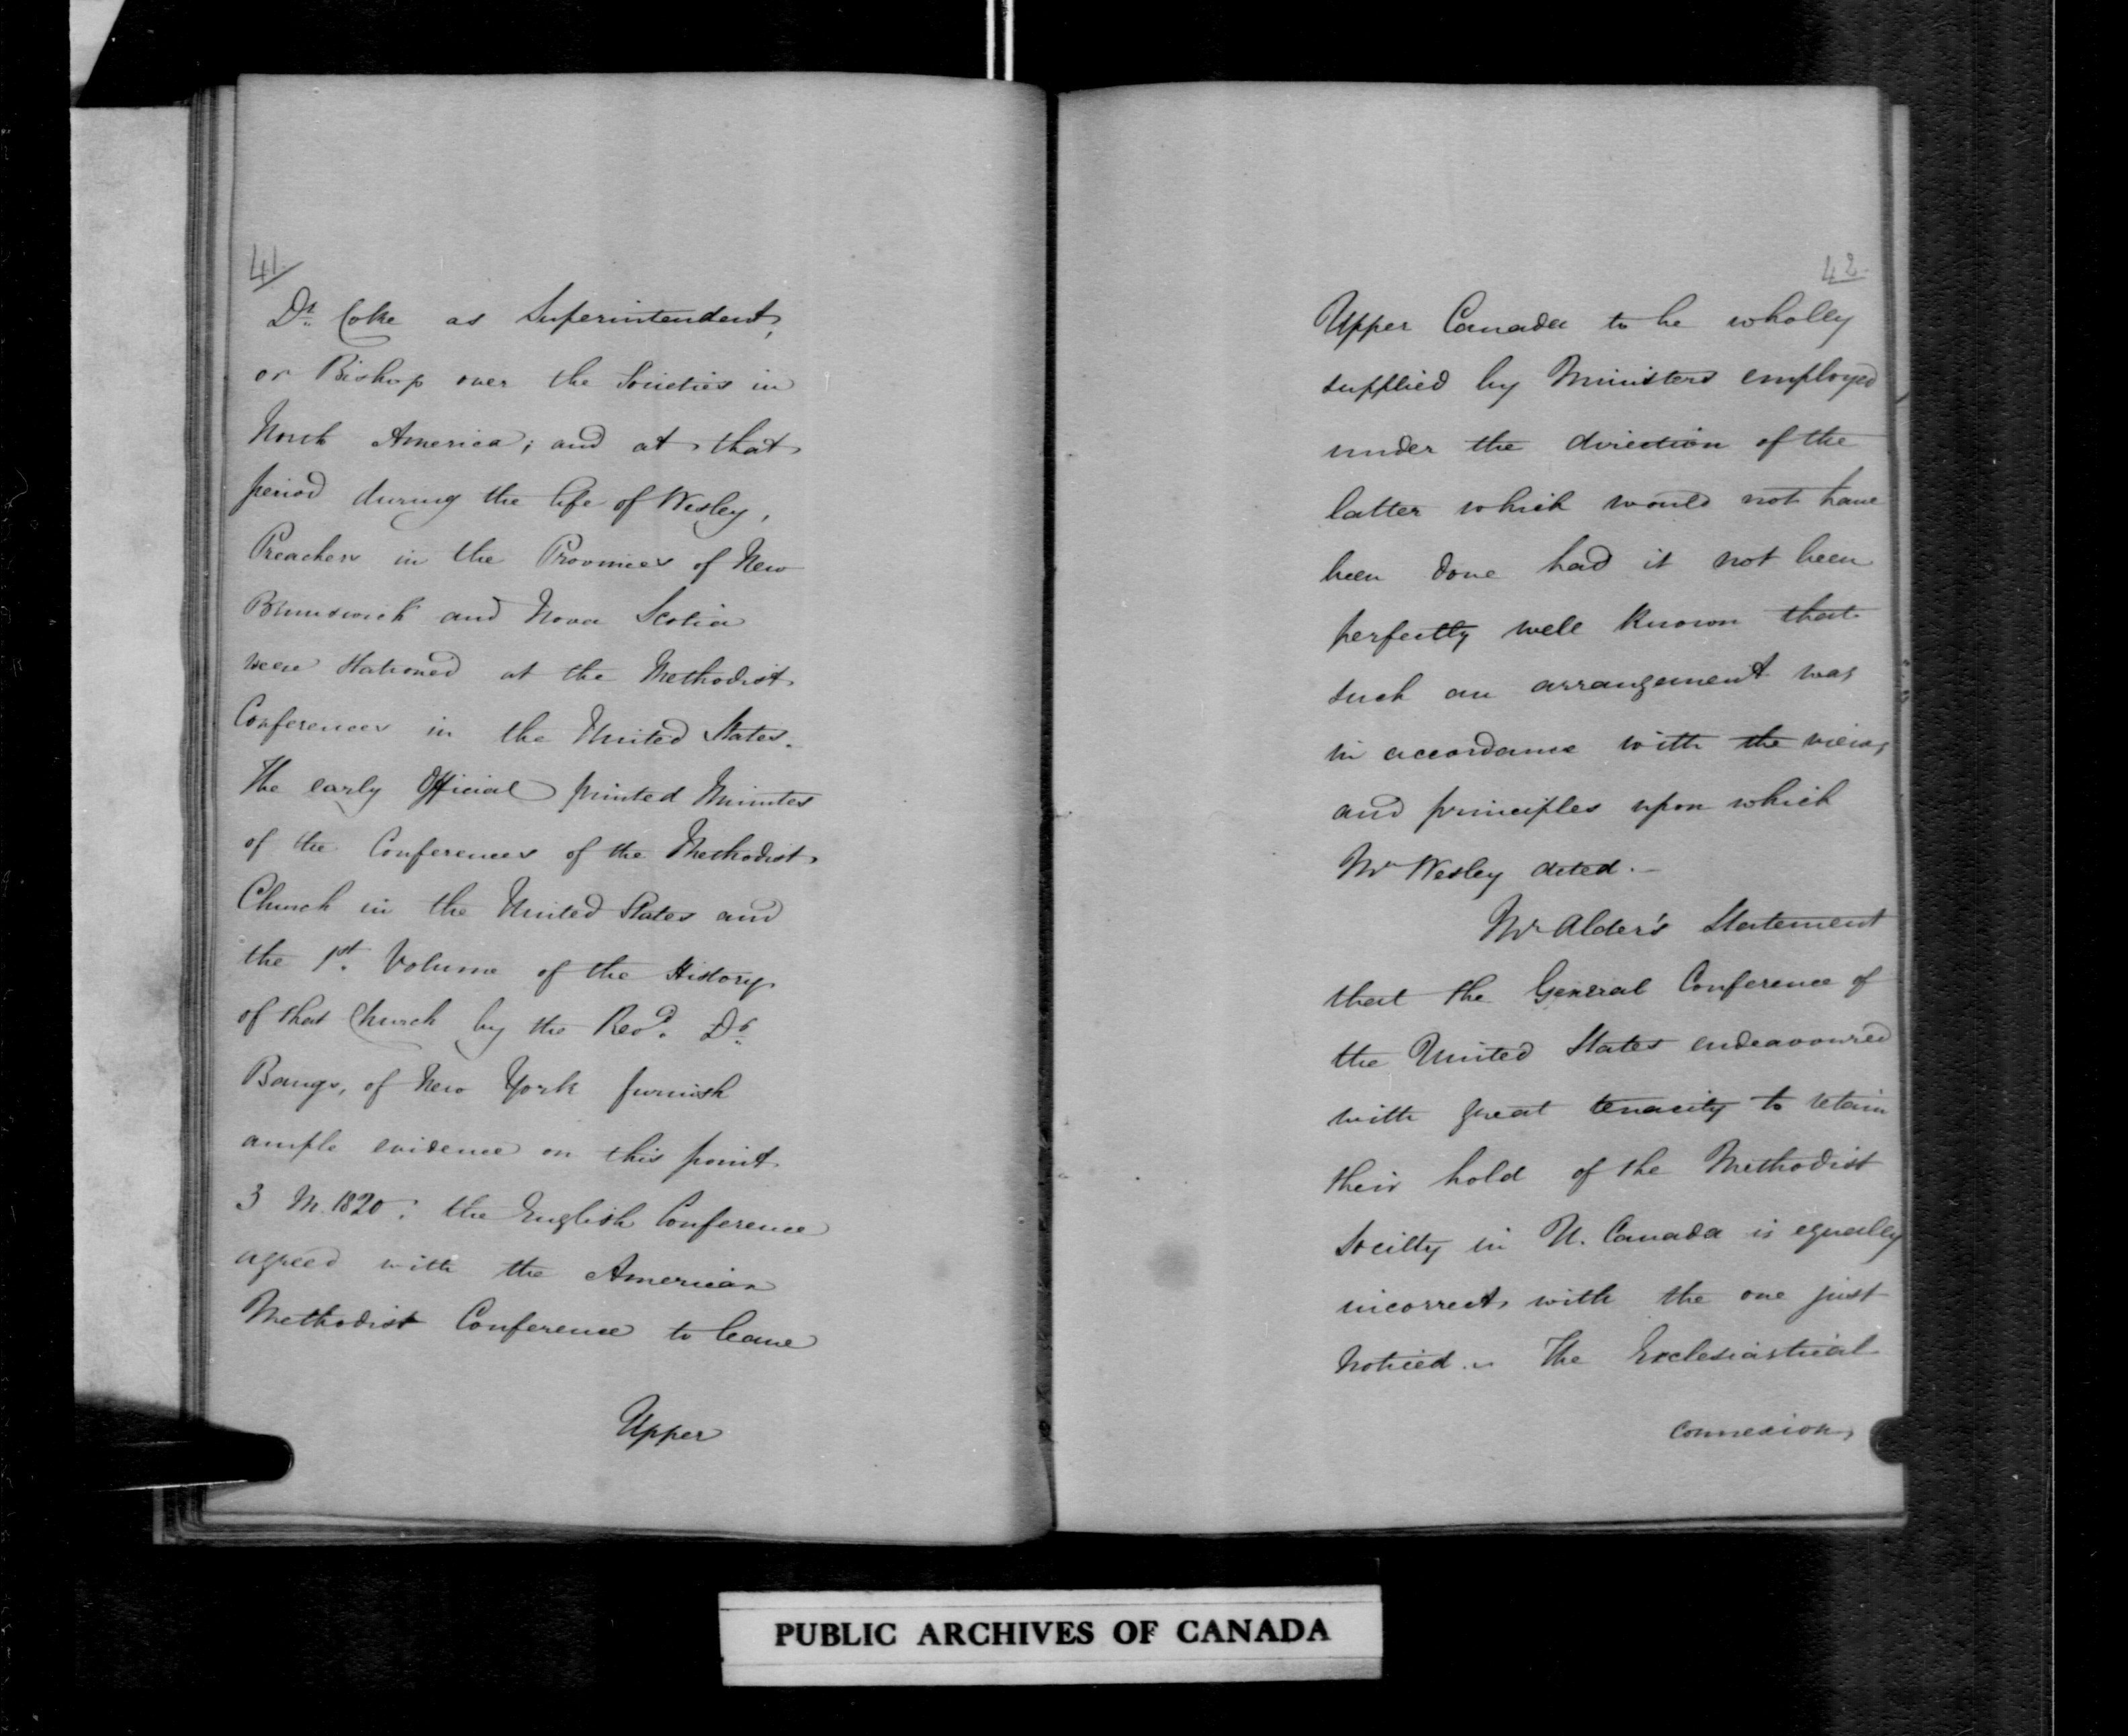 41.
Dr. Coke as Superintendent,
or Bishop over the Societies in
North America; and at that
period during the life of Wesley,
Preachers in the Provinces of New
Brunswick and Nova Scotia
were stationed at the Methodist
Conferences in the United States.
The early Official printed Minutes
of the Conferences of the Methodist
Church in the United States and
the 1st. Volume of the History
of that Church by the Revd. Dr.
Bangs, of New York furnish
ample evidence on this point.
3 In 1820: the English Conference
agreed with the American
Methodist Conference to leave
Upper
42.
Upper Canada to be wholly
supplied by Ministers employed
under the direction of the
latter which would not have
been done had it not been
perfectly well known that
such an arrangement was
in accordance with the views
and principles upon which
Mr Wesley acted.—
Mr Alder's Statement
that the General Conference of
the United States endeavoured
with great tenacity to retain
their hold of the Methodist
Society in U. Canada is equally
incorrect with the one just
noticed.. The Ecclesiastical
connexion,
PUBLIC ARCHIVES OF CANADA